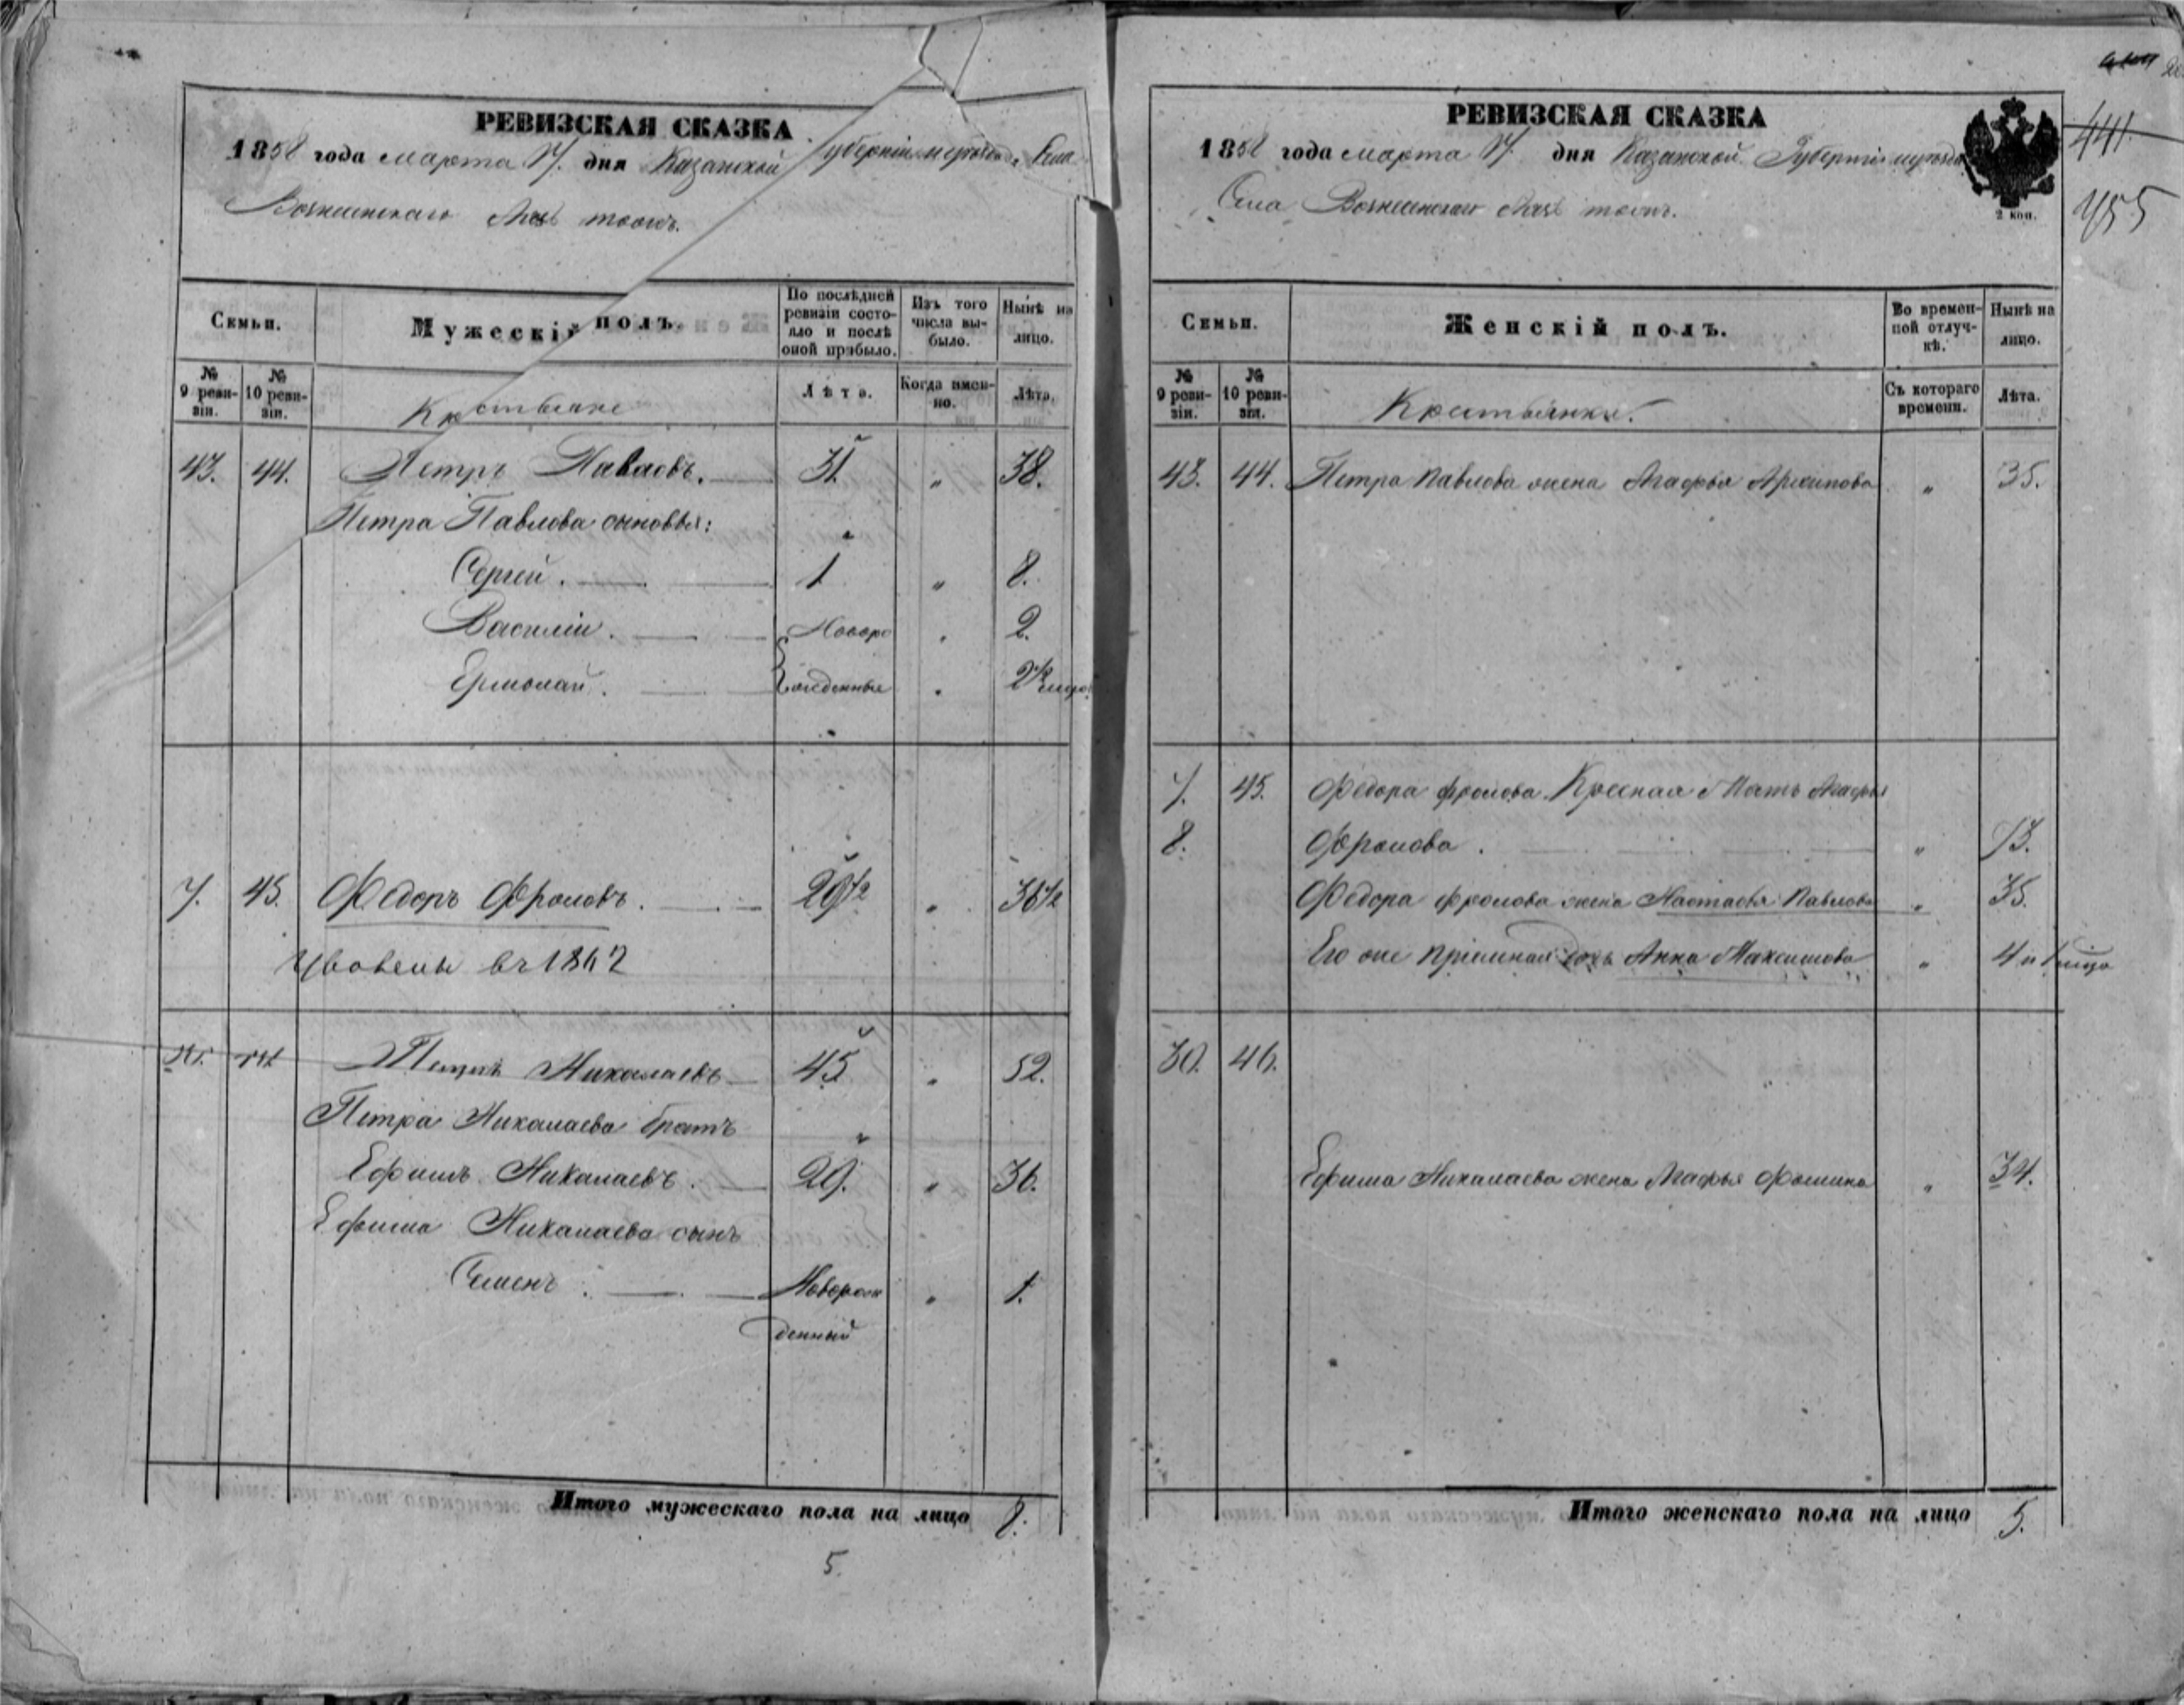 РЕВИЗСКАЯ СКАЗКА
1858 года марта 17. дня Казанской Губерніи и уѣзда, Села
Вознесенскаго тожъ.
Семьи.
Мужескій полъ.
По послѣдней ревизіи состояло и послѣ оной прибыло.
Изъ того числа выбыло.
Нынѣ на лицо.
№ 9 ревизіи.
№ 10 ревизіи.
Крестьяне
Лѣта.
Когда именно.
Лѣта.
43. 44. Петръ Павловъ. 31. " 38.
Петра Павлова сыновья:
Сергей. 1 " 8.
Василіи. Новоро " 2.
Ермолай. жденные " 2 1/2
7. 45. Федоръ Фроловъ. 29 1/2 " 36 1/2
Уволены въ 1862
Петръ Николаевъ 45 " 52.
Петра Николаева братъ
Ефимъ Николаевъ. 29. " 36.
Ефима Николаева сынъ
Семенъ. Новорож " 1.
денный
Итого мужескаго пола на лицо 8.
5.
441.
455
РЕВИЗСКАЯ СКАЗКА
1858 года марта 17. дня Казанской Губерніи и уѣзда
2 коп.
Села Вознесенскаго тожъ.
Семьи.
Женскій полъ.
Во временной отлучкѣ.
Нынѣ на лицо.
№ 9 ревизіи.
№ 10 ревизіи.
Крестьянки.
Съ котораго времени.
Лѣта.
43. 44. Петра Павлова жена Агафья Архипова " 35.
7. 45. Федора Фролова Мать Агафья
8. Фролова. " 73.
Федора Фролова жена Настасья Павлова " 35.
Его же пріемная дочь Анна Максимова " 4 и 1
30. 46.
Ефима Николаева жена Агафья Фомина " 34.
Итого женскаго пола на лицо 5.